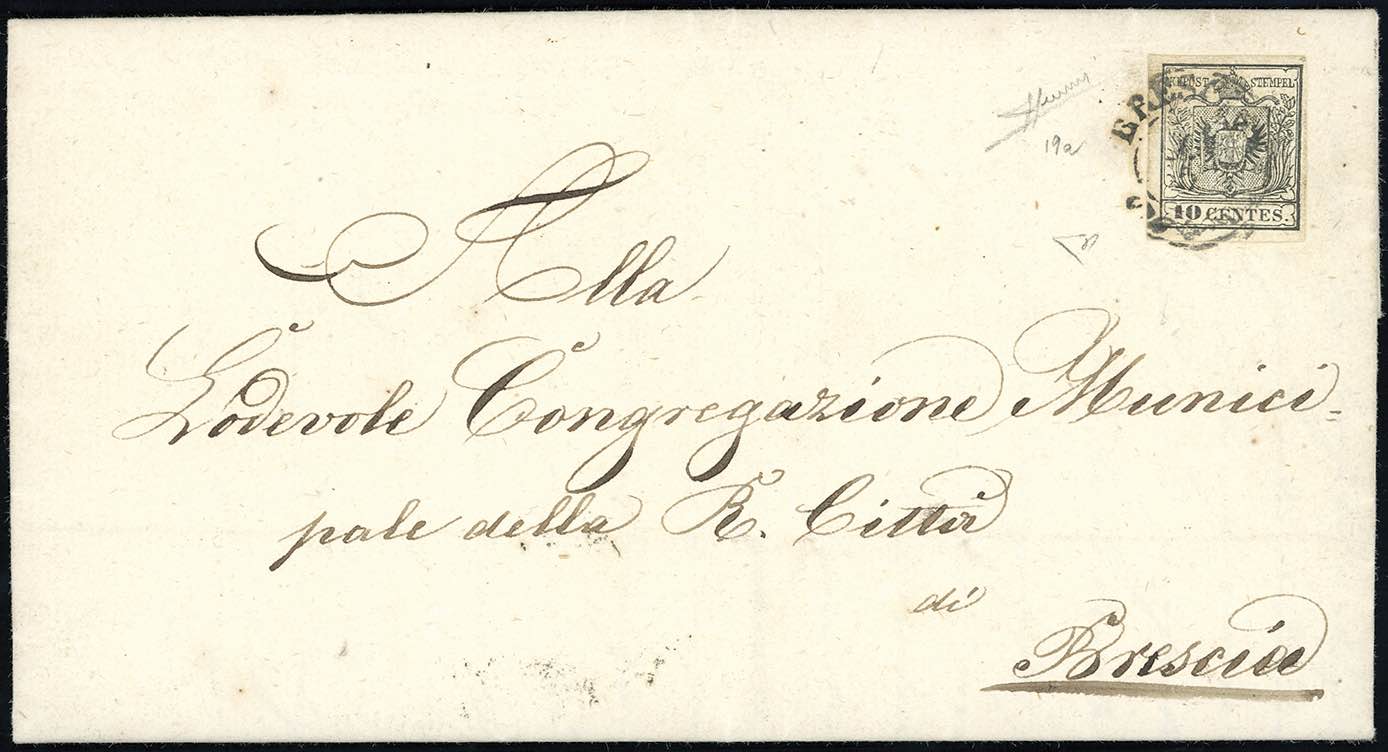 KK POST STEMPEL
10 CENTES.
19a
Alla
Lodevole Congregazione Munici-
pale della R. Città
di
Brescia